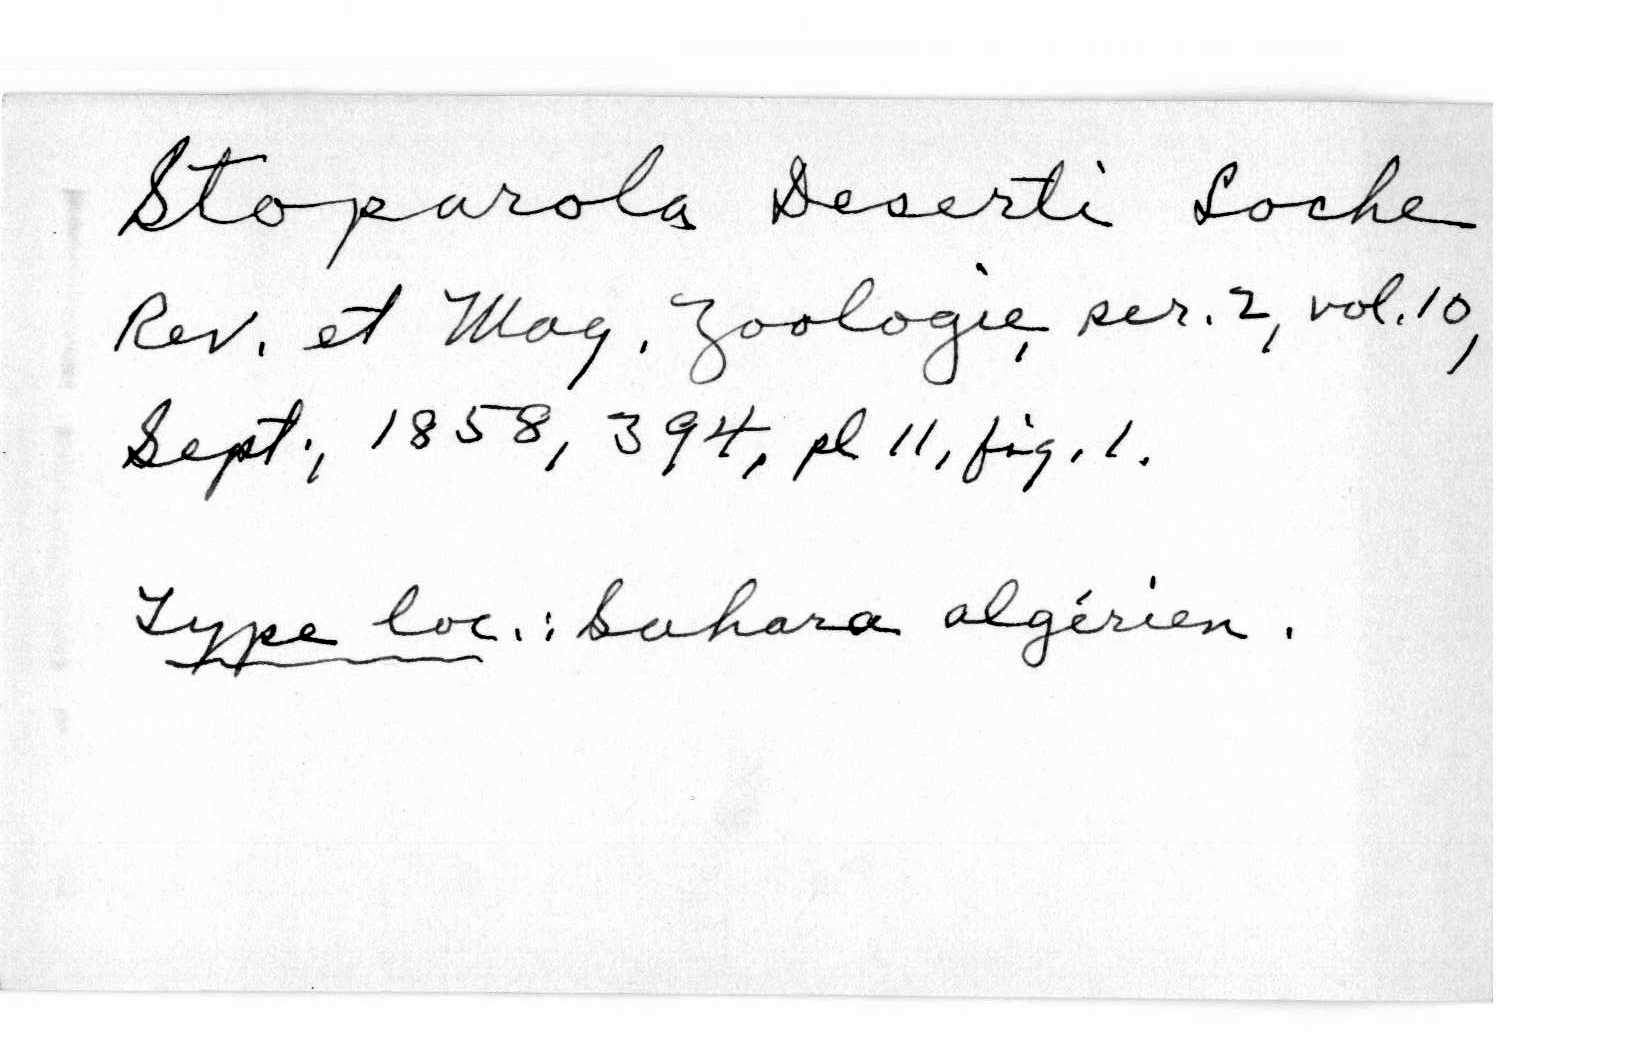 Stoparola Deserti Loche
Rev. et Mag. Zoologie, ser. 2, vol. 10,
Sept., 1858, 394, pl 11, fig. 1.
Type loc.: Sahara algérien.